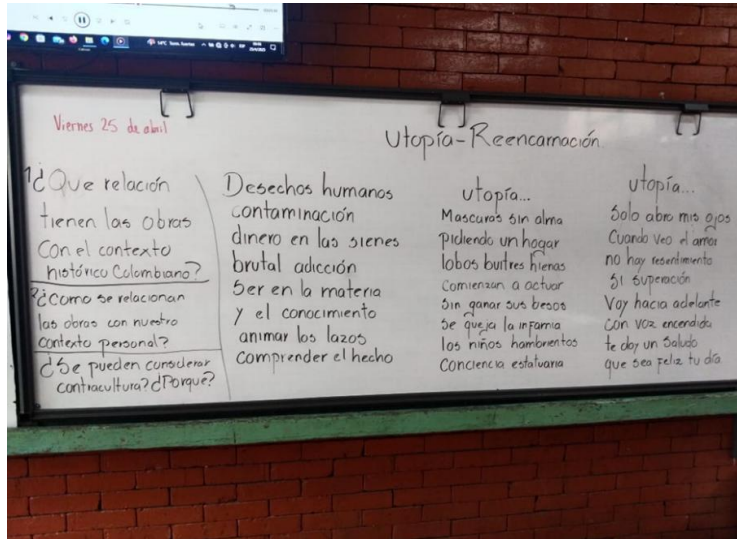 Viernes 25 de abril
Utopía-Reencarnación
1¿Que relación
tienen las obras
con el contexto
histórico Colombiano?
2¿como se relacionan
las obras con nuestro
contexto personal?
¿Se pueden considerar
contracultura? ¿Porque?
Desechos humanos
contaminación
dinero en las sienes
brutal adicción
Ser en la materia
y el conocimiento
animar los lazos
comprender el hecho
utopía...
Mascaras sin alma
pidiendo un hogar
lobos buitres hienas
comienzan a actuar
sin ganar sus besos
se queja la infamia
los niños hambrientos
Conciencia estatuaria
utopía...
Solo abro mis ojos
Cuando veo el amor
no hay resentimiento
SI superación
Voy hacia adelante
con voz encendida
te doy un Saludo
que sea feliz tu día